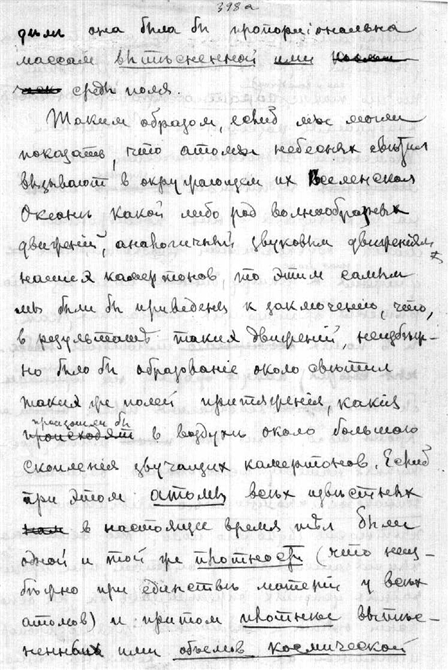 398а
дыми она была бы пропорціональна
массам вытѣсненной ими
среды поля.
Такимъ образомъ, еслибъ мы могли
показать, что атомы небесныхъ свѣтилъ
вызываютъ в окружающемъ их Вселенскомъ
Океанѣ какой либо род волнообразныхъ
движеній, аналогичный звуковымъ движеніямъ
нашихъ камертоновъ, то этимъ самымъ
мы были бы приведены к заключенію, что,
в результатѣ такихъ движеній, неизбѣж-
но было бы образованіе около свѣтилъ
такихъ же полей притяженія, какія
произошли бы
происходятъ в воздухѣ около большого
скопленія звучащихъ камертоновъ. Еслибъ
при этомъ атомы всѣхъ извѣстныхъ
в настоящее время тѣлъ были
одной и той же плотности (что неиз-
бѣжно при единствѣ матеріи у всѣхъ
атомовъ) и притомъ плотнѣе вытѣс-
ненныхъ ими объемовъ космической